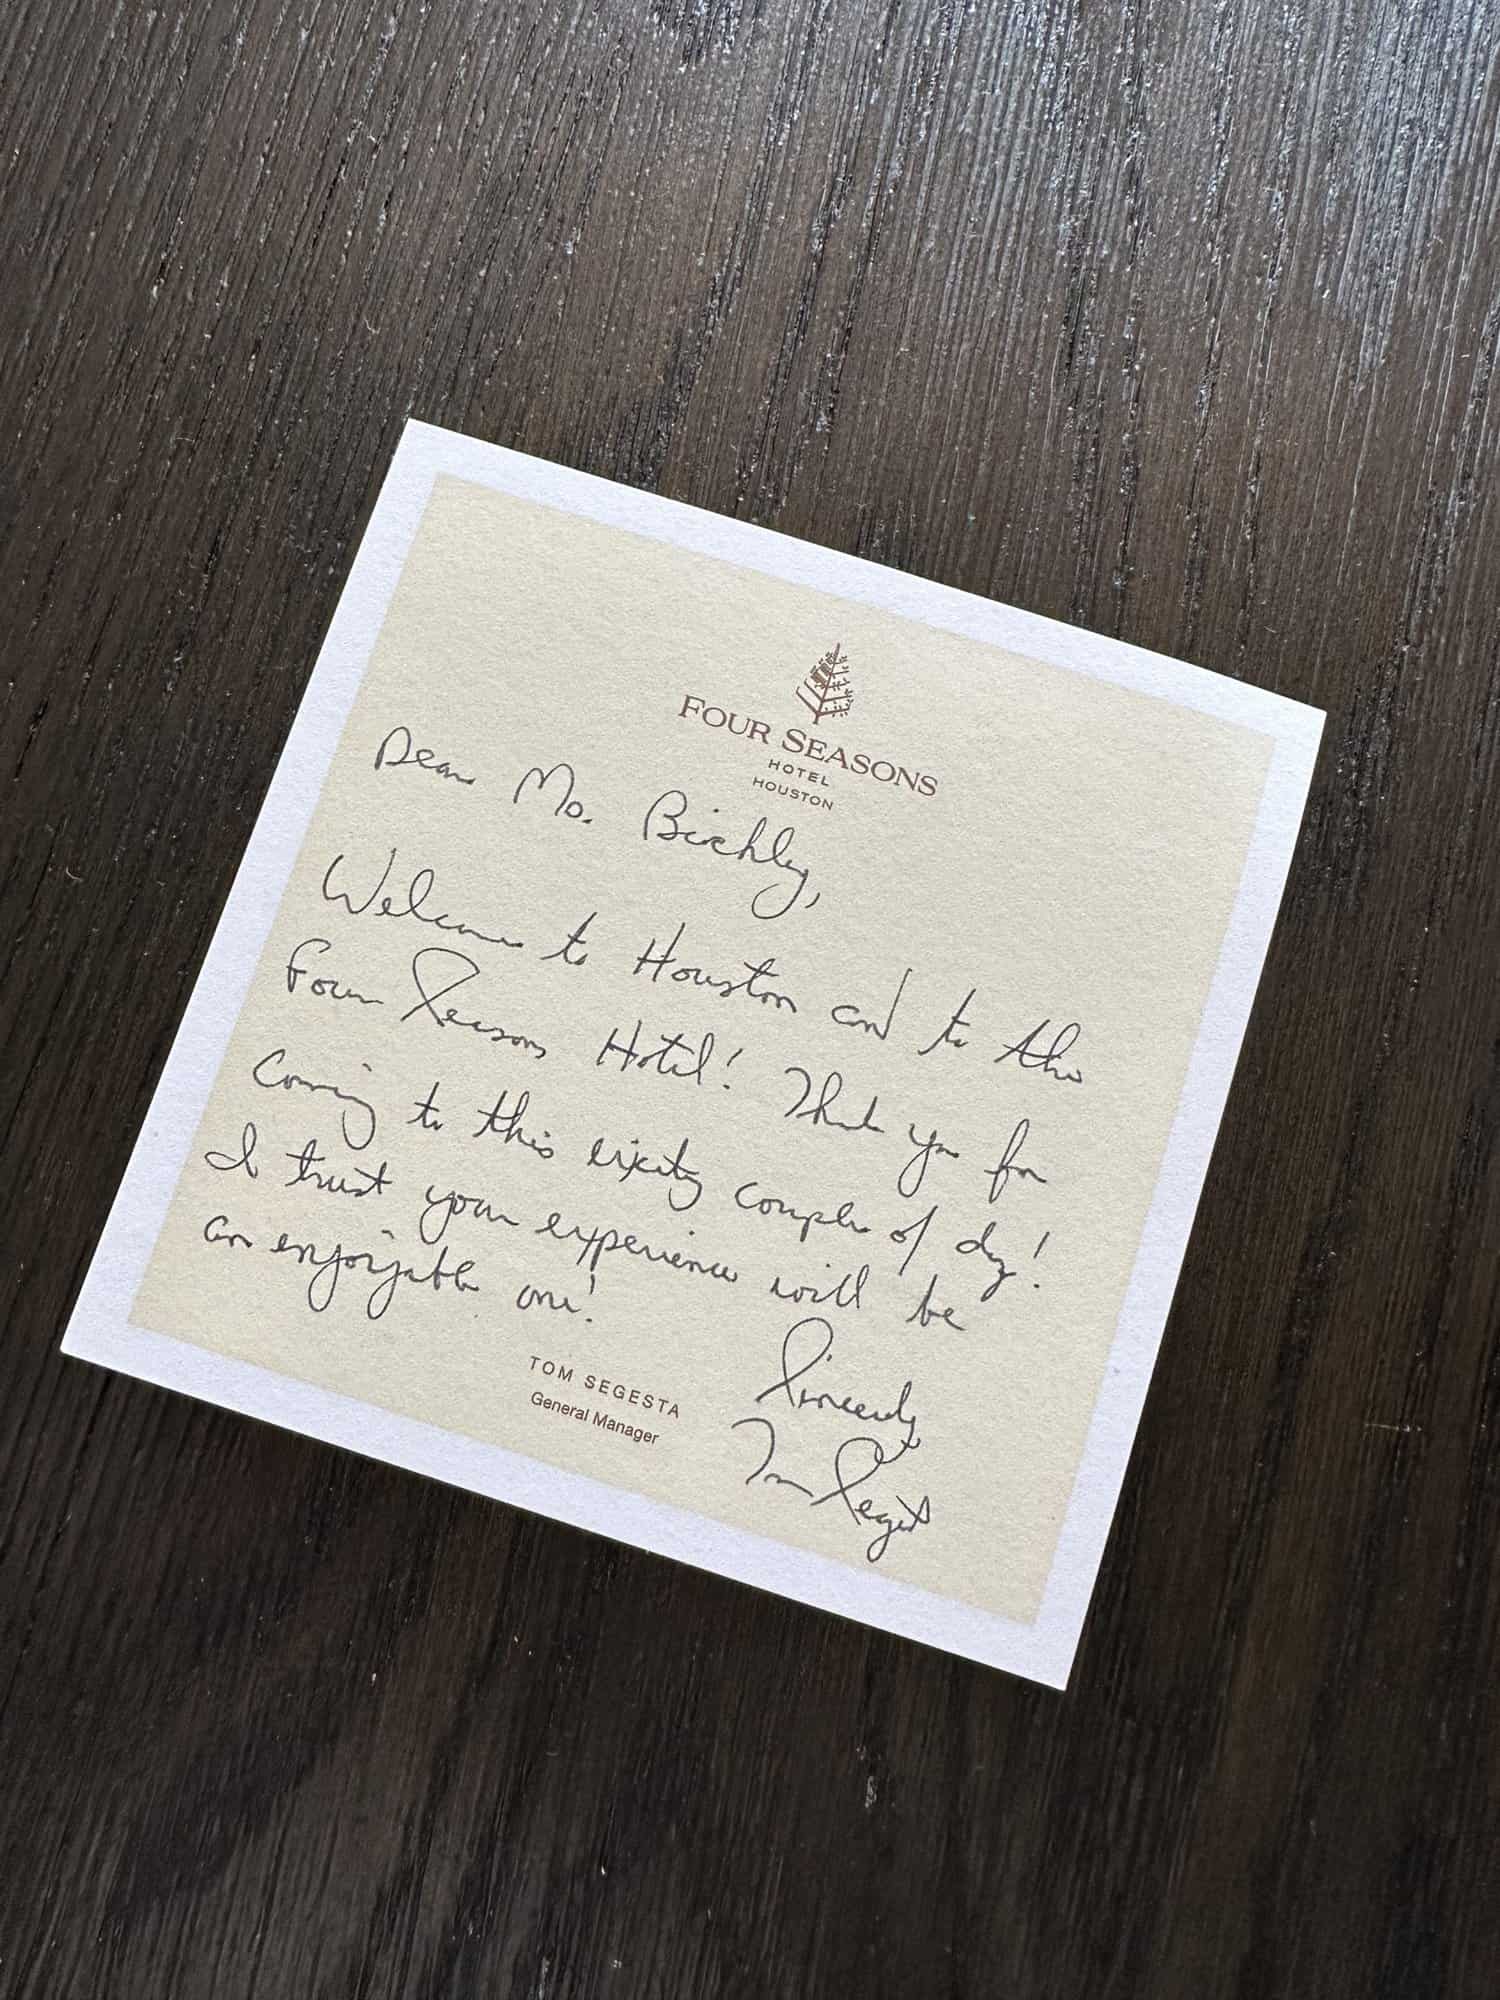 FOUR SEASONS
HOTEL
HOUSTON
Dear Ms. Birchly,
Welcome to Houston and to the
Four Seasons Hotel! Thank you for
coming to this exciting couple of days!
I trust your experience will be
an enjoyable one!
Sincerely,
Tom Segesta
TOM SEGESTA
General Manager